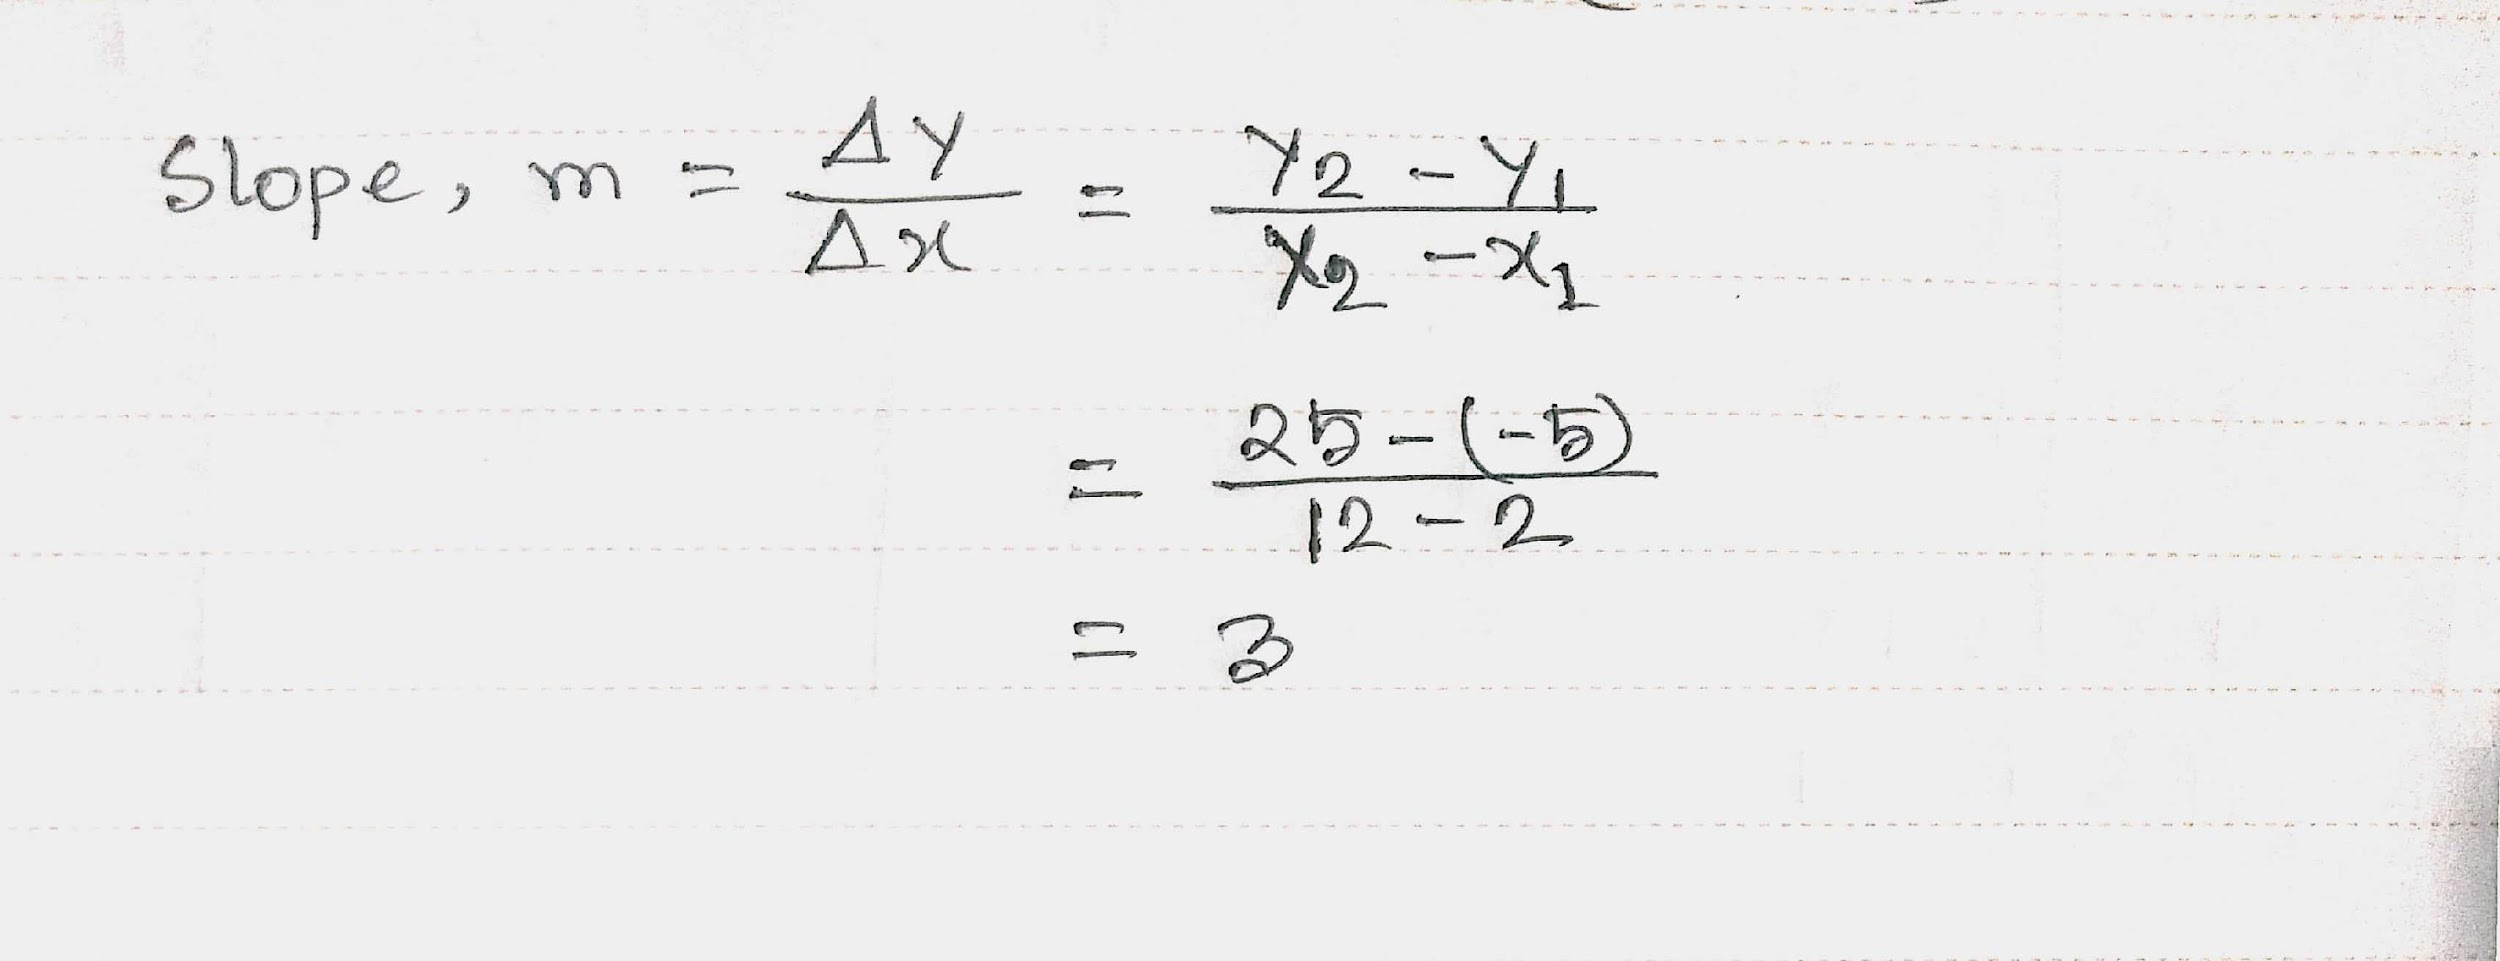 Slope, m = Δy/Δx = (y₂ - y₁)/(x₂ - x₁)
= (25 - (-5))/(12 - 2)
= 3